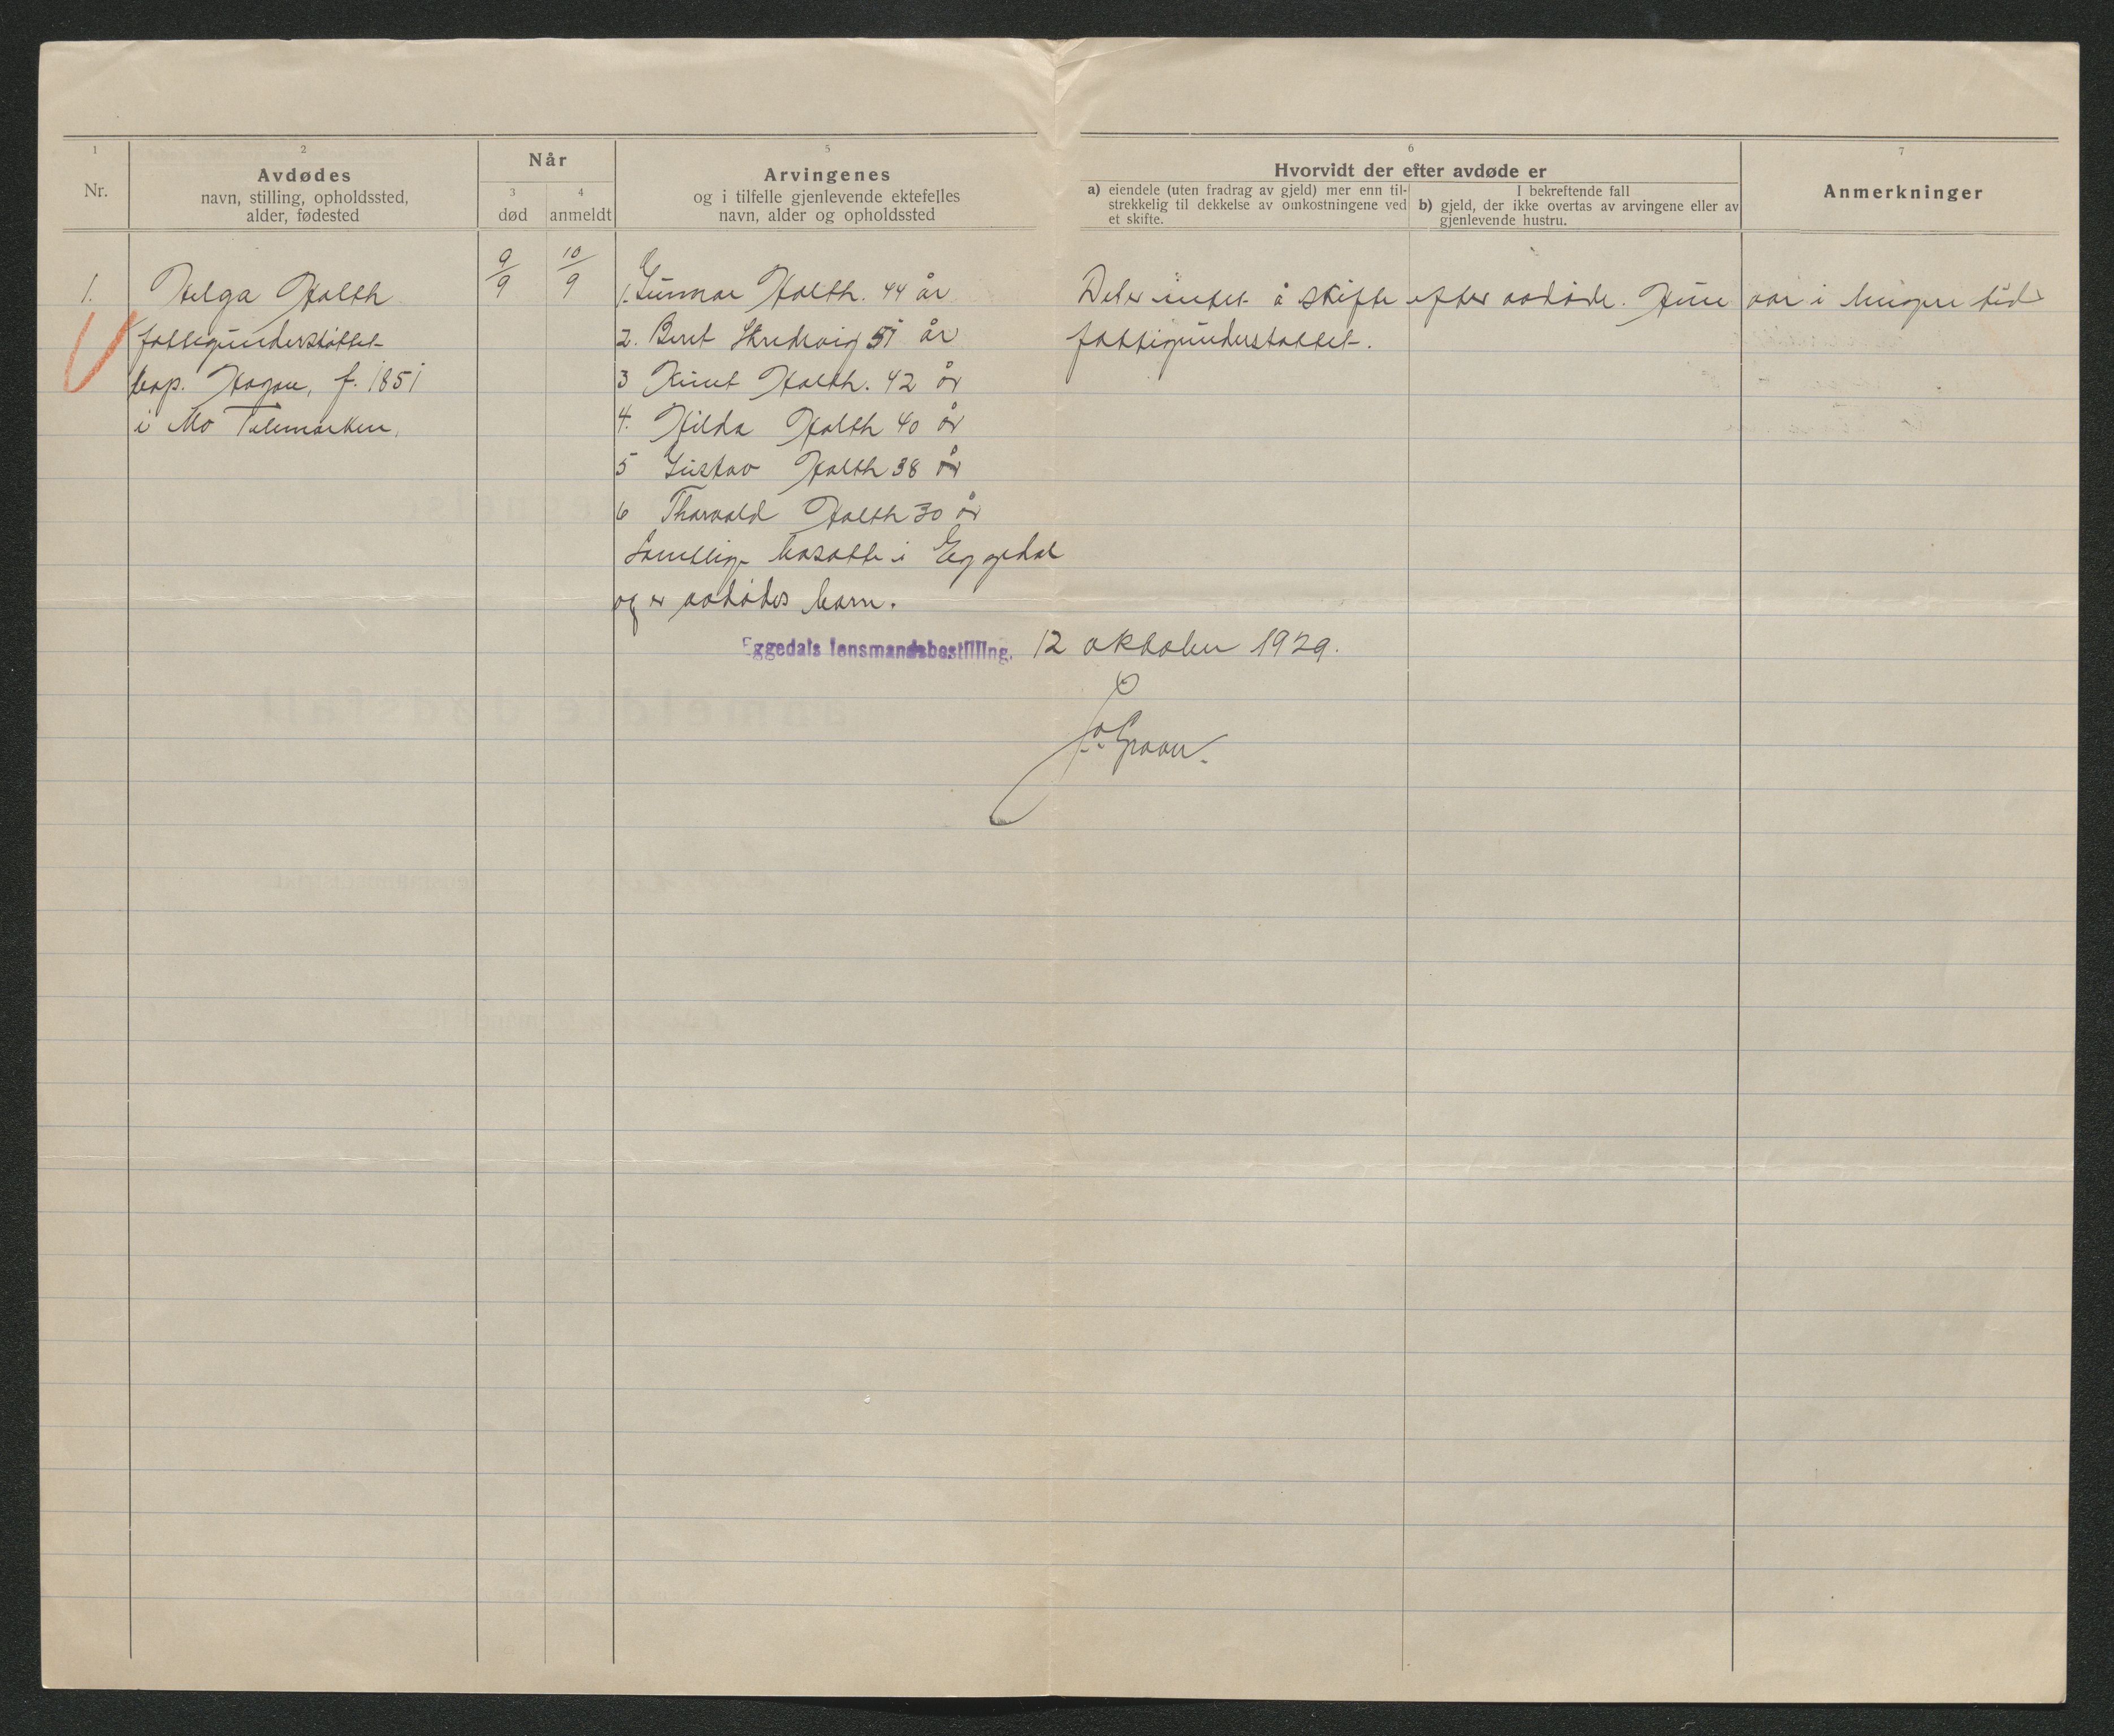 1
2
3
4
5
6
7
Nr.
Avdødes
navn, stilling, opholdssted,
alder, fødested
Når
død
anmeldt
Arvingenes
og i tilfelle gjenlevende ektefelles
navn, alder og opholdssted
Hvorvidt der efter avdøde er
a) eiendele (uten fradrag av gjeld) mer enn til-
strekkelig til dekkelse av omkostningene ved
et skifte.
I bekreftende fall
b) gjeld, der ikke overtas av arvingene eller av
gjenlevende hustru.
Anmerkninger
1. Helga Holth
fattigunderstøttet
Hagan, f. 1851
i Mo Telemarken.
9/9
10/9
1. Gunnar Holth. 44 år
2. Berit Skredsvig 51 år
3 Knut Holth. 42 år
4. Hilda Holth 40 år
5 Gustav Holth 38 år
6 Thorvald Holth 30 år
Samtlige bosatte i Eggedal
og er avdødes barn.
Det er intet å skifte efter avdøde. Hun var i lengre tid
fattigunderstøttet.
Eggedals lensmandsbestilling. 12 oktober 1929.